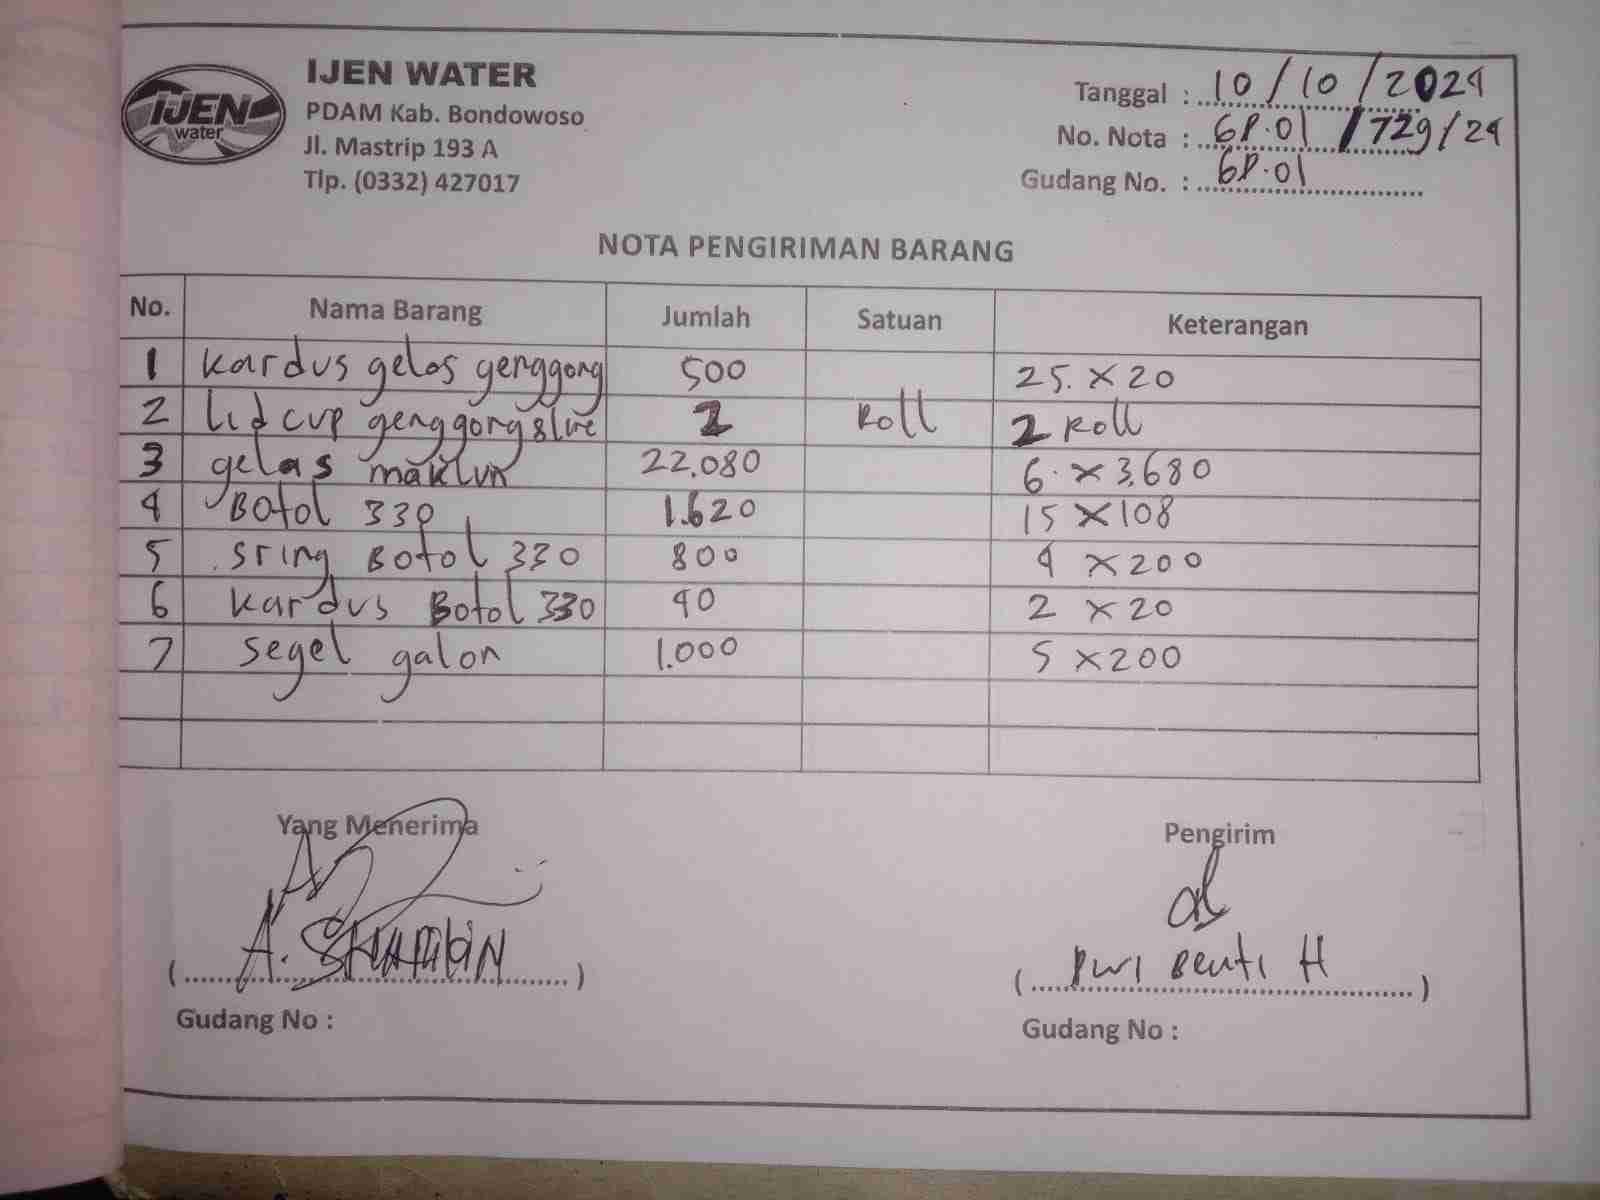 IJEN water
IJEN WATER
PDAM Kab. Bondowoso
Jl. Mastrip 193 A
Tlp. (0332) 427017
Tanggal : 10/10/2024
No. Nota : GP.01/729/24
Gudang No. : GP.01
NOTA PENGIRIMAN BARANG
No. Nama Barang Jumlah Satuan Keterangan
1 kardus gelas genggong 500 25. x 20
2 Lid cup genggong 2 Roll 2 Roll
3 gelas maklun 22.080 6. x 3.680
4 Botol 330 1.620 15 x 108
5 sring Botol 330 800 4 x 200
6 kardus Botol 330 40 2 x 20
7 segel galon 1.000 5 x 200
Yang Menerima Pengirim
(A.) (H)
Gudang No : Gudang No :